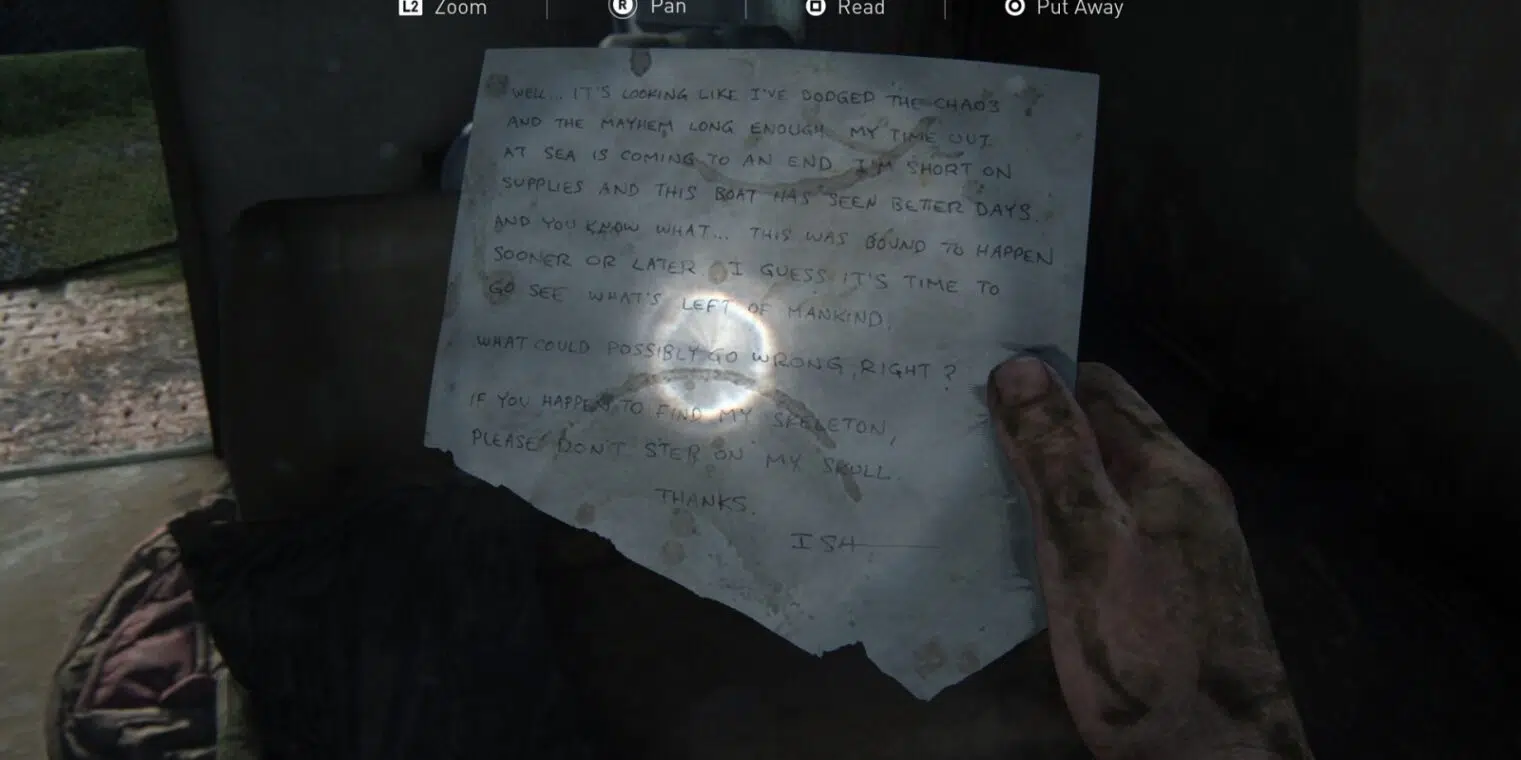 L2 Zoom R Pan Read Put Away
WELL... IT'S LOOKING LIKE I'VE DODGED THE CHAOS
AND THE MAYHEM LONG ENOUGH. MY TIME OUT
AT SEA IS COMING TO AN END. I'M SHORT ON
SUPPLIES AND THIS BOAT HAS SEEN BETTER DAYS.
AND YOU KNOW WHAT... THIS WAS BOUND TO HAPPEN
SOONER OR LATER. I GUESS IT'S TIME TO
GO SEE WHAT'S LEFT OF MANKIND.
WHAT COULD POSSIBLY GO WRONG, RIGHT?
IF YOU HAPPEN TO FIND MY SKELETON,
PLEASE DON'T STEP ON MY SKULL.
THANKS.
ISH